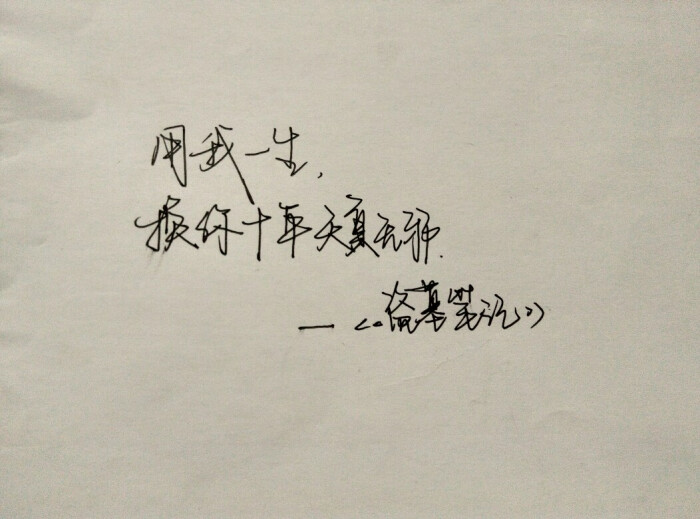 用我一生,
换你十年天真无邪.
—《盗墓笔记》